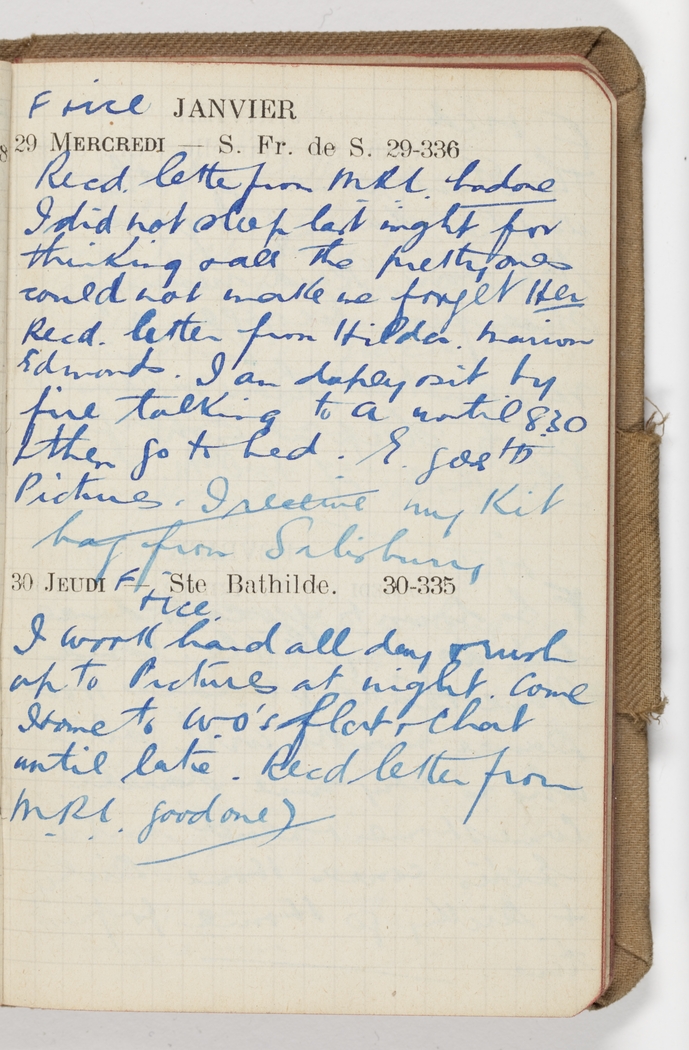 F & ice JANVIER
8 29 MERCREDI — S. Fr. de S. 29-336
Recd. letter from M.R.L. bad one
I did not sleep last night for
thinking & all the pretty ones
could not make me forget Her
Recd. letter from Hilda. Marion
Edmonds. I am &
fire talking to a until 8.30
& then go to bed. E. goes to
Pictures. I receive my Kit
bag from Salisbury
30 JEUDI — Ste Bathilde. 30-335
F & ice.
I work hard all day & rush
up to Pictures at night. Come
Home to W.O's flat & chat
until late. Recd letter from
M.R.L. good one)